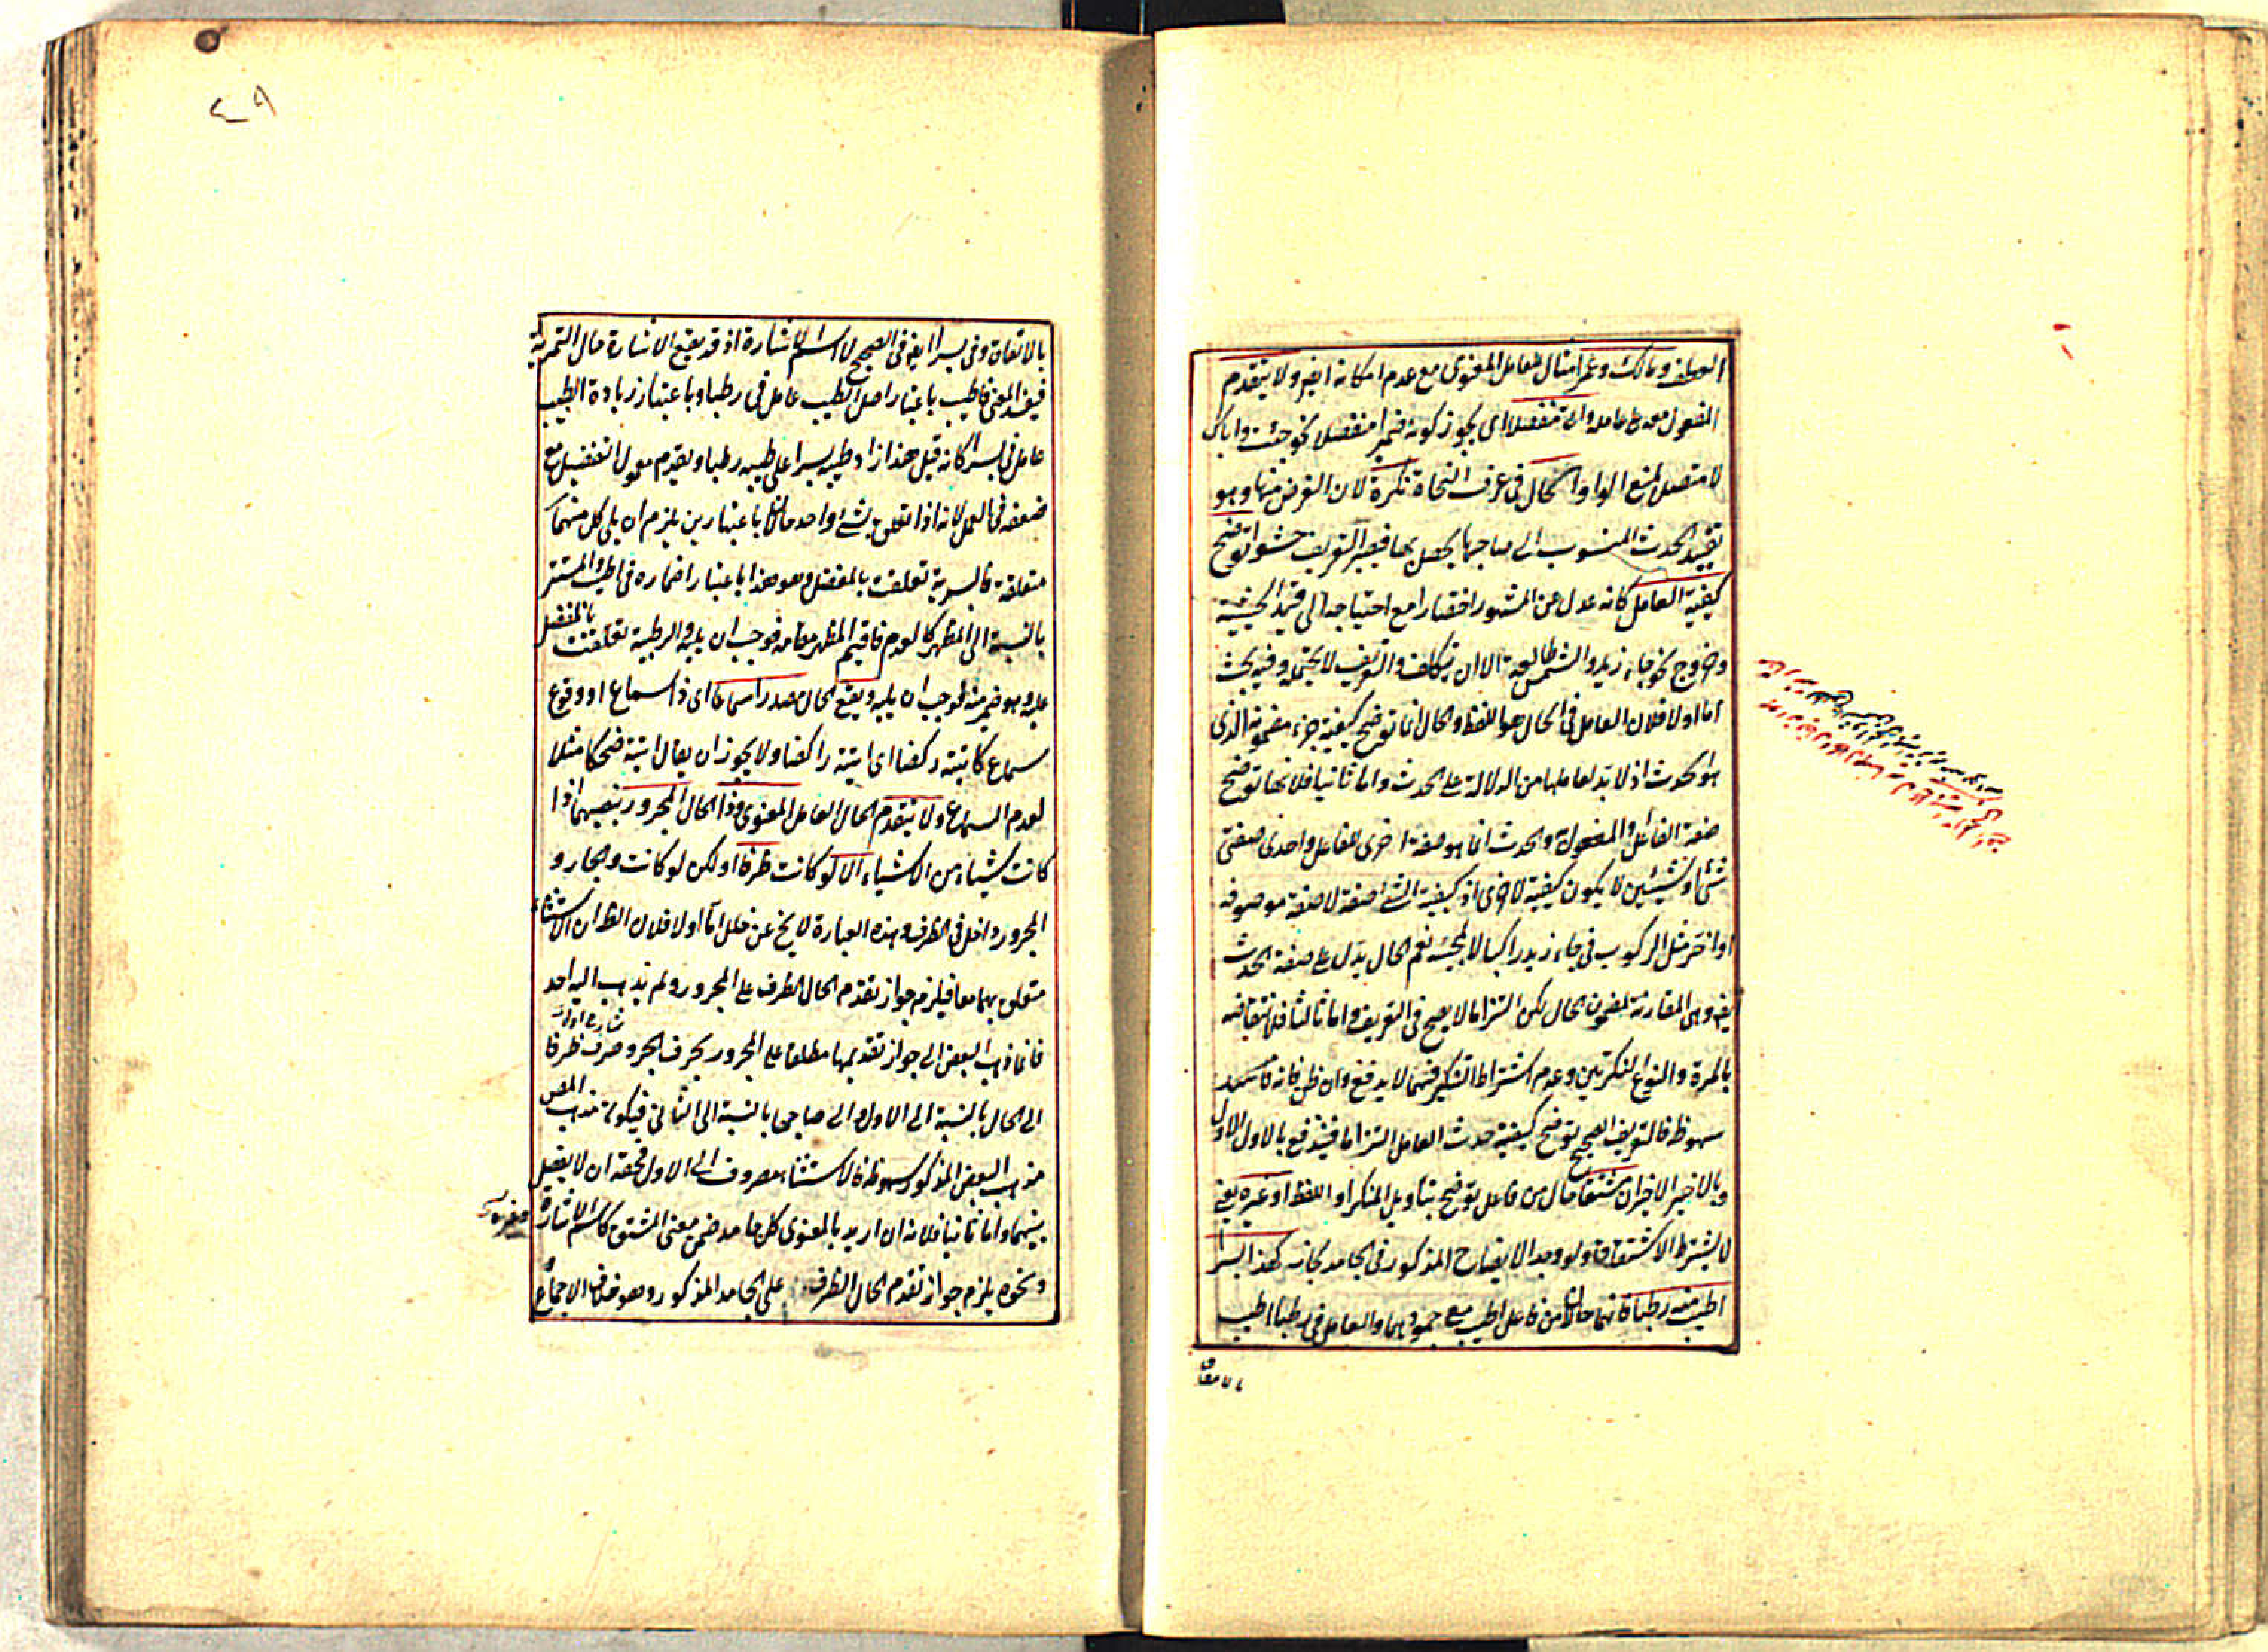 العطف ومالك وعمرا مثال للعامل المعنوى مع عدم امكانه ايضا ولا يتقدم
المفعول معه على عامله وان منفصلا اى يجوز كونه ضميرا منفصلا نحو جئت واياك
لا متصل لمنع الواو الحال فى عرف النحاة نكرة لان الغرض منها وهو
تقييد الحدث المنسوب الى صاحبها يحصل بها فيصير التعريف حشوا توضح
كيفية العامل كانه عدل عن المشهور اختصارا مع احتياجه الى قيد الحيثية
وخروج نحو جاء زيد والشمس طالعة الا ان يتكلف والتعريف لا يحتمله وفيه بحث
اما اولا فلان العامل فى الحال هو اللفظ والحال انما توضح كيفية جزء مفهومه الذى
هو الحدث اذ لا بد لعاملها من الدلالة على الحدث واما ثانيا فلانها توضح
صفة الفاعل والمفعول والحدث انما هو صفة اخرى للفاعل واحدى صفتى
شئ او شيئين لا يكون كيفية لاخرى اذ كيفية الشئ صفته لا صفة موصوفه
او اخر مثل الركوب فى جاء زيد راكبا لا لمجيئه نعم الحال يدل على صفة الحدث
ايضا وهى المقارنة لمضمون الحال لكن التزاما لا يصح فى التعريف واما ثالثا فلانتقاضه
بالمرة والنوع النكرتين وعدم اشتراط التنكير فيهما لا يدفع وان ظن فانه
سهو ظ فالتعريف الصحيح توضح كيفية حدث العامل التزاما فيندفع بالاول الاول
وبالاخير الاخيران مشتقا حال من فاعل توضح بتأويل المنكر او اللفظ او غيره يعنى
لا يشترط الاشتقاق ولو وجد الايضاح المذكور فى الجامد جاز كهذا بسرا
اطيب منه رطبا فانهما حالان من فاعل اطيب مع جمودهما والعامل فى رطبا اطيب
بالاتفاق
بالاتفاق وفى بسرا ايضا فى الصحيح لا اسم الاشارة اذ قد يقع الاشارة حال التمرية
فيفسد المعنى فاطيب باعتبار اصل الطيب عامل فى رطبا وباعتبار زيادة الطيب
عامل فى بسرا كانه قيل هذا زاد طيبه بسرا على طيبه رطبا وتقدم معمول التفضيل مع
ضعفه فى العمل لانه اذا تعلق بشئ واحد حالان باعتبارين يلزم ان يلى كل منهما
متعلقه فالبسرية تعلقت بالمفضل وهو هذا باعتبار اضماره فى اطيب والمستتر
بالنسبة الى المظهر كالعدم فاقيم المظهر مقامه فوجب ان يليه والرطبية تعلقت بالمفضل
عليه وهو ضمير منه فوجب ان يليه ويقع الحال مصدرا سماعا اى ذا سماع او وقوع
سماع كاتيته ركضا اى اتيته راكضا ولا يجوز ان يقال اتيته ضحكا مثلا
لعدم السماع ولا يتقدم الحال العامل المعنوى وذا الحال المجرور بنصبهما اذا
كانت شيئا من الاشياء الا لو كانت ظرفا اولكن لو كانت والجار و
المجرور داخل فى الظرف وهذه العبارة لا يخ عن خلل اما اولا فلان الظ ان الاستثناء
متعلق بهما معا فيلزم جواز تقدم الحال الظرف على المجرور ولم يذهب اليه احد
فانما ذهب البعض الى جواز تقديمها مطلقا على المجرور بحرف الجر وصرف ظرفا
الى الحال بالنسبة الى الاول والى صاحبها بالنسبة الى الثانى فيكون مذهب المص
مذهب البعض المذكور سهو ظ فالاستثناء مصروف الى الاول فحقه ان لا يفصل
بينهما واما ثانيا فلانه ان اريد بالمعنوى كل جامد ضمن معنى المشتق كاسم الاشارة
ونحوه يلزم جواز تقدم الحال الظرف على الجامد المذكور وهو خلاف الاجماع